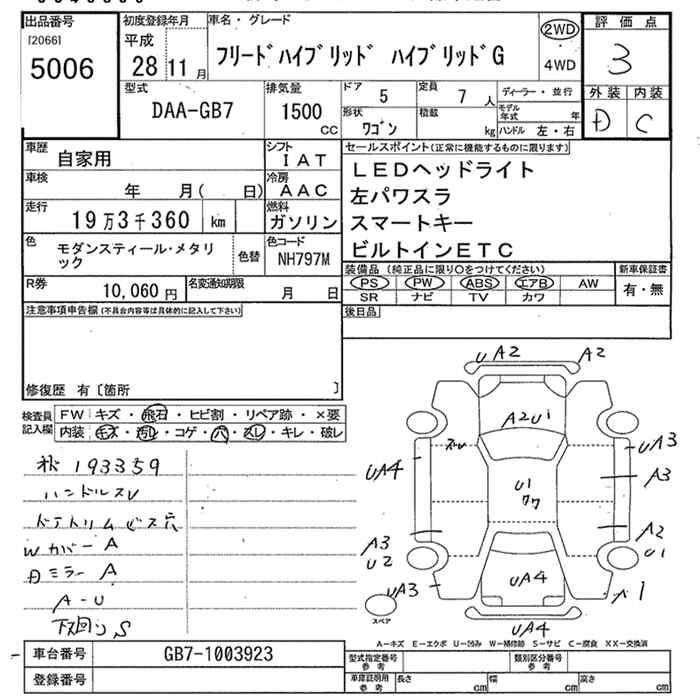 出品番号
[2066]
5006
初度登録年月
平成
28 11 月
車名・グレード
フリードハイブリッド ハイブリッドG
2WD
・
4WD
評価点
3
外装 内装
D C
型式
DAA-GB7
排気量
1500
CC
ドア
5
定員
7 人
形状
ワゴン
積載
kg
ディーラー・並行
モデル年式 年
ハンドル 左・右
車歴
自家用
シフト
IAT
車検
年 月( 日)
冷房
AAC
走行
19万3千360 km
燃料
ガソリン
色
モダンスティール・メタリック
色替
色コード
NH797M
R券
10,060 円
名変通知期限
月 日
セールスポイント(正常に機能するものに限ります)
LEDヘッドライト
左パワスラ
スマートキー
ビルトインETC
装備品(純正品に限り○をつけてください)
PS PW ABS エアB AW
SR ナビ TV カワ
新車保証書
有・無
後日品
注意事項申告欄(不具合内容等は具体的に記入して下さい)
修復歴 有〔箇所 〕
検査員記入欄
FW キズ・飛石・ヒビ割・リペア跡・×要
内装 キズ・汚レ・コゲ・穴・スレ・キレ・破レ
193359
ハンドルスレ
ドアトリムビス穴
Wカバー A
ミラー A
A-U
下回り S
UA2
A2
A2U1
スレ
UA3
UA4
A3
U1
ワワ
A3
U2
A2
U1
UA3
UA4
A1
UA4
スペア
A-キズ E-エクボ U-凹み W-補修跡 S-サビ C-腐食 XX-交換済
車台番号
GB7-1003923
登録番号
型式指定番号
参考
類別区分番号
参考
車庫証明用
参考
長さ cm
幅 cm
高さ cm